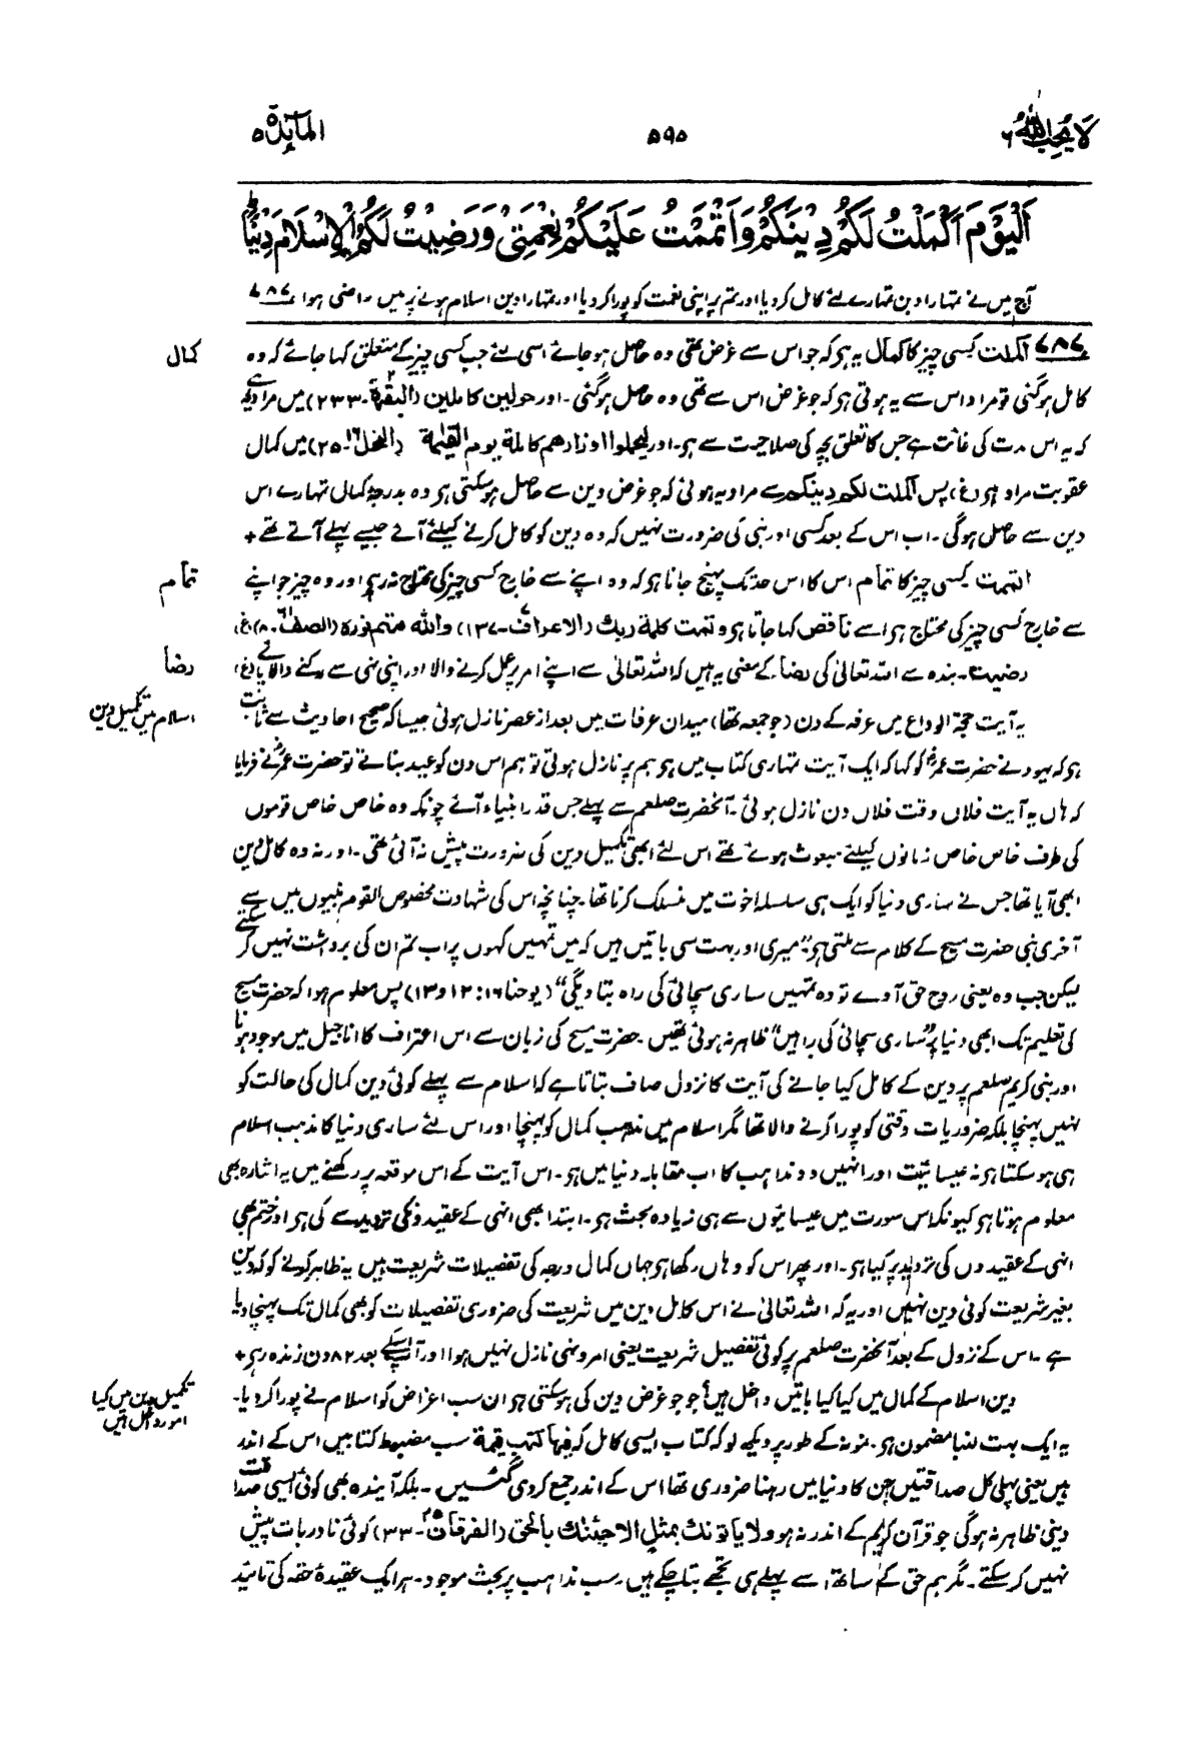 لَا يُحِبُّ اللّٰهُ ۶
۵۹۵
المآئدة ۵
اَلْيَوْمَ اَكْمَلْتُ لَكُمْ دِيْنَكُمْ وَاَتْمَمْتُ عَلَيْكُمْ نِعْمَتِيْ وَرَضِيْتُ لَكُمُ الْاِسْلَامَ دِيْنًا ؕ
آج میں نے تمہارا دین تمہارے لئے کامل کر دیا اور تم پر اپنی نعمت کو پورا کر دیا اور تمہارا دین اسلام ہونے پر میں راضی ہوا ۷۸۷
۷۸۷ اکملت کسی چیز کا کمال یہ ہے کہ جو اس سے غرض تھی وہ حاصل ہو جائے اسی لئے جب کسی چیز کے متعلق کہا جائے کہ وہ
کمال
کامل ہو گئی تو مراد اس سے یہ ہوتی ہے کہ جو غرض اس سے تھی وہ حاصل ہو گئی۔ اور حولین کاملین (البقرة ۲۔۲۳۳) میں مراد یہ ہے
کہ یہ اس مدت کی غائت ہے جس کا تعلق بچہ کی صلاحیت سے ہے۔ اور لیحملوا اوزارهم کاملة یوم القیٰمة (النحل ۱۶۔۲۵) میں کمال
عقوبت مراد ہے (غ) پس اکملت لکم دینکم سے مراد یہ ہوئی کہ جو غرض دین سے حاصل ہو سکتی ہے وہ بدرجہ کمال تمہارے اس
دین سے حاصل ہو گی۔ اب اس کے بعد کسی اور نبی کی ضرورت نہیں کہ وہ دین کو کامل کرنے کیلئے آئے جیسے پہلے آتے تھے +
اتممت کسی چیز کا تمام اس کا اس حد تک پہنچ جانا ہے کہ وہ اپنے سے خارج کسی چیز کی محتاج نہ رہے اور وہ چیز جو اپنے
تمام
سے خارج کسی چیز کی محتاج ہو اسے ناقص کہا جاتا ہے وتمت کلمة ربك (الاعراف ۷۔۱۳۷) والله متم نوره (الصف ۶۱۔۸) (غ)
رضیت۔ بندہ سے اللہ تعالیٰ کی رضا کے معنی یہ ہیں کہ اللہ تعالیٰ سے اپنے امر پر عمل کرنے والا اور اپنی نہی سے رکنے والا پائے (غ)
رضا
یہ آیت حجۃ الوداع میں عرفہ کے دن (جو جمعہ تھا) میدان عرفات میں بعد از عصر نازل ہوئی جیسا کہ صحیح احادیث سے ثابت
اسلام میں تکمیل دین
ہے کہ یہود نے حضرت عمرؓ کو کہا کہ ایک آیت تمہاری کتاب میں ہے ہم پر نازل ہوتی تو ہم اس دن کو عید بناتے تو حضرت عمرؓ نے فرمایا
کہ ہاں یہ آیت فلاں وقت فلاں دن نازل ہوئی۔ آنحضرت صلعم سے پہلے جس قدر انبیاء آئے چونکہ وہ خاص خاص قوموں
کی طرف خاص خاص زمانوں کیلئے مبعوث ہوئے تھے اس لئے ابھی تکمیل دین کی ضرورت پیش نہ آئی تھی۔ اور نہ وہ کامل دین
ابھی آیا تھا جس نے ساری دنیا کو ایک ہی سلسلہ اخوت میں منسلک کرنا تھا۔ چنانچہ اس کی شہادت مخصوص القوم نبیوں میں سے
آخری نبی حضرت مسیح کے کلام سے ملتی ہے: "میری اور بہت سی باتیں ہیں کہ میں تمہیں کہوں پر اب تم ان کی برداشت نہیں کر سکتے
لیکن جب وہ یعنی روح حق آوے تو وہ تمہیں ساری سچائی کی راہ بتاویگی" (یوحنا ۱۶: ۱۲ و ۱۳) پس معلوم ہوا کہ حضرت مسیح
کی تعلیم تک ابھی دنیا پر "ساری سچائی کی راہیں" ظاہر نہ ہوئی تھیں۔ حضرت مسیح کی زبان سے اس اعتراف کا اناجیل میں موجود ہونا
اور نبی کریم صلعم پر دین کے کامل کیا جانے کی آیت کا نزول صاف بتاتا ہے کہ اسلام سے پہلے کوئی دین کمال کی حالت کو
نہیں پہنچا بلکہ ضروریات وقتی کو پورا کرنے والا تھا مگر اسلام میں مذہب کمال کو پہنچا اور اس لئے ساری دنیا کا مذہب اسلام
ہی ہو سکتا ہے نہ عیسائیت اور انہیں دو مذاہب کا اب مقابلہ دنیا میں ہے۔ اس آیت کے اس موقعہ پر رکھنے میں یہ اشارہ بھی
معلوم ہوتا ہے کیونکہ اس سورت میں عیسائیوں سے ہی زیادہ بحث ہے۔ ابتدا بھی انہی کے عقیدہ کی تردید سے کی ہے اور ختم بھی
انہی کے عقیدوں کی تردید پر کیا ہے۔ اور پھر اس کو وہاں رکھا ہے جہاں کمال درجہ کی تفصیلات شریعت ہیں یہ ظاہر کرنے کو کہ دین
بغیر شریعت کوئی دین نہیں اور یہ کہ اللہ تعالیٰ نے اس کامل دین میں شریعت کی ضروری تفصیلات کو بھی کمال تک پہنچا دیا
ہے۔ اس کے نزول کے بعد آنحضرت صلعم پر کوئی تفصیل شریعت یعنی امر و نہی نازل نہیں ہوا اور آپ اسکے بعد ۸۲ دن زندہ رہے +
دین اسلام کے کمال میں کیا کیا باتیں داخل ہیں؟ جو جو غرض دین کی ہو سکتی ہے ان سب اغراض کو اسلام نے پورا کر دیا۔
تکمیل دین میں کیا
امور داخل ہیں
یہ ایک بہت لمبا مضمون ہے۔ نمونہ کے طور پر دیکھ لو کہ کتاب ایسی کامل کہ فیها کتب قیمة سب مضبوط کتابیں اس کے اندر
ہیں یعنی پہلی کل صداقتیں جن کا دنیا میں رہنا ضروری تھا اس کے اندر جمع کر دی گئیں۔ بلکہ آیندہ بھی کوئی ایسی صداقت
دینی ظاہر نہ ہو گی جو قرآن کریم کے اندر نہ ہو ولا یاتونك بمثل الا جئنٰك بالحق (الفرقان ۲۵۔۳۳) کوئی نادر بات پیش
نہیں کر سکتے۔ مگر ہم حق کے ساتھ اسے پہلے ہی تجھے بتا چکے ہیں۔ سب مذاہب پر بحث موجود۔ ہر ایک عقیدۂ حقہ کی تائید